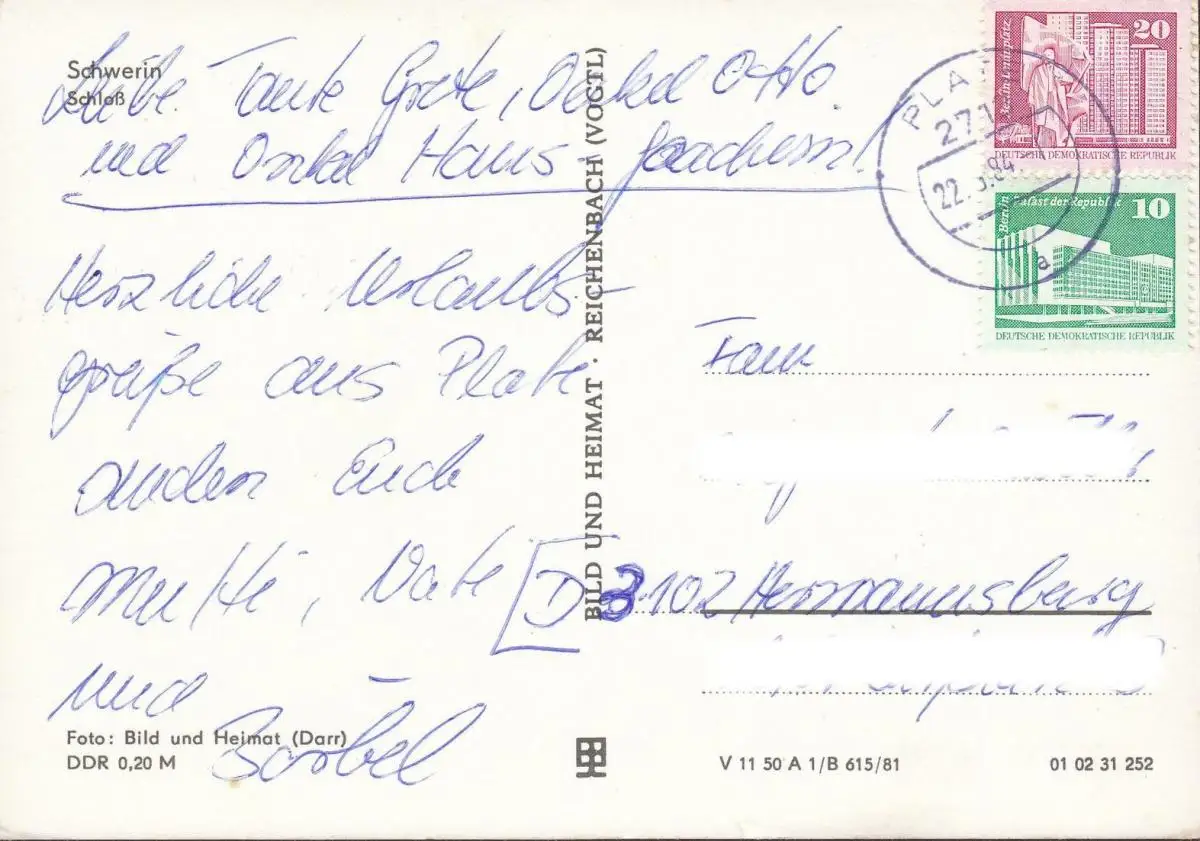 Schwerin
Schloß
Liebe Tante Grete, Onkel Otto
und Onkel Hans-Joachim!
Herzliche Urlaubs-
grüße aus Plate
senden Euch
Mutti, Vati
und
Bärbel
Foto: Bild und Heimat (Darr)
DDR 0,20 M
BILD UND HEIMAT · REICHENBACH (VOGTL)
V 11 50 A 1/B 615/81
01 02 31 252
20
Berlin-Leninplatz
DEUTSCHE DEMOKRATISCHE REPUBLIK
Berlin Palast der Republik
10
DEUTSCHE DEMOKRATISCHE REPUBLIK
271
84
a
Fam
D 3102 Hermannsburg